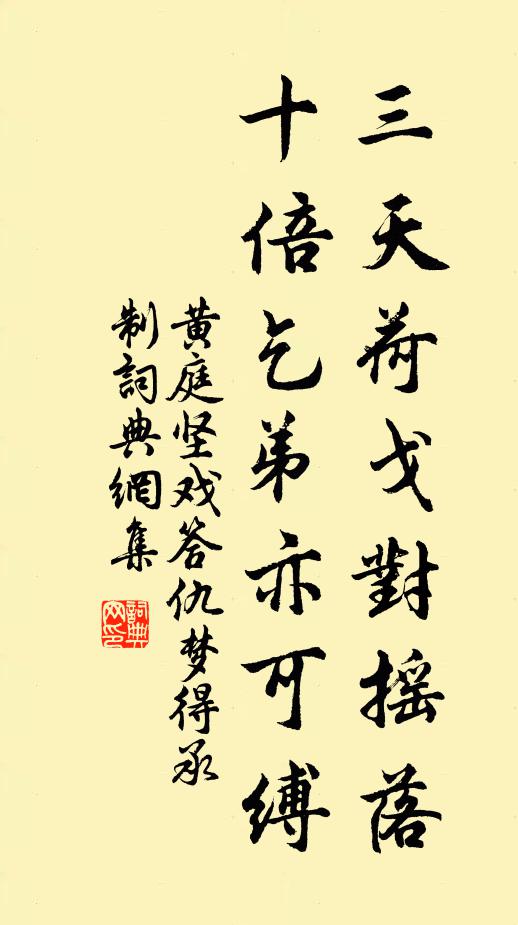 三天荷戈對摇落
十倍乞弟亦可縛
黄庭坚戏答仇梦得承
制詞典網集
詞典网印